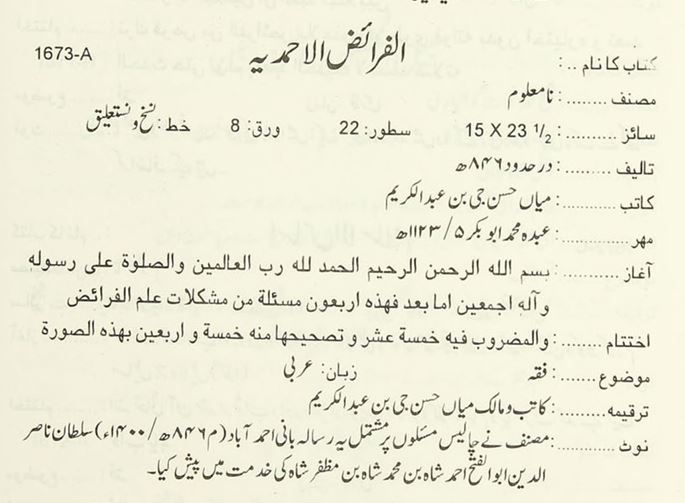 1673-A
کتاب کا نام ..: الفرائض الاحمدیہ
مصنف ........: نامعلوم
سائز .........: 15 X 23 1/2 سطور: 22 ورق: 8 خط: نسخ و نستعلیق
تالیف ........: درحدود ۸۴۶ھ
کاتب ........: میاں حسن جی بن عبدالکریم
مہر ..........: عبدہ محمد ابوبکر ۵/۱۱۲۳ھ
آغاز .........: بسم الله الرحمن الرحيم الحمد لله رب العالمين والصلوٰة على رسوله
وآله اجمعين اما بعد فهذه اربعون مسئلة من مشكلات علم الفرائض
اختتام .......: والمضروب فيه خمسة عشر و تصحيحها منه خمسة و اربعين بهذه الصورة
موضوع.......: فقہ زبان: عربی
ترقیمہ ........: کاتب و مالک میاں حسن جی بن عبدالکریم
نوٹ .........: مصنف نے چالیس مسئلوں پر مشتمل یہ رسالہ بانی احمد آباد (م ۸۴۶ھ/۱۴۰۰ء) سلطان ناصر
الدین ابوالفتح احمد شاہ بن محمد شاہ بن مظفر شاہ کی خدمت میں پیش کیا۔